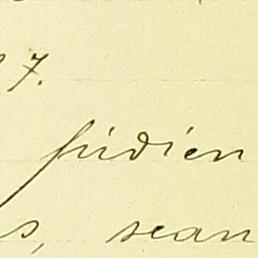 7.
pidien
s, sean